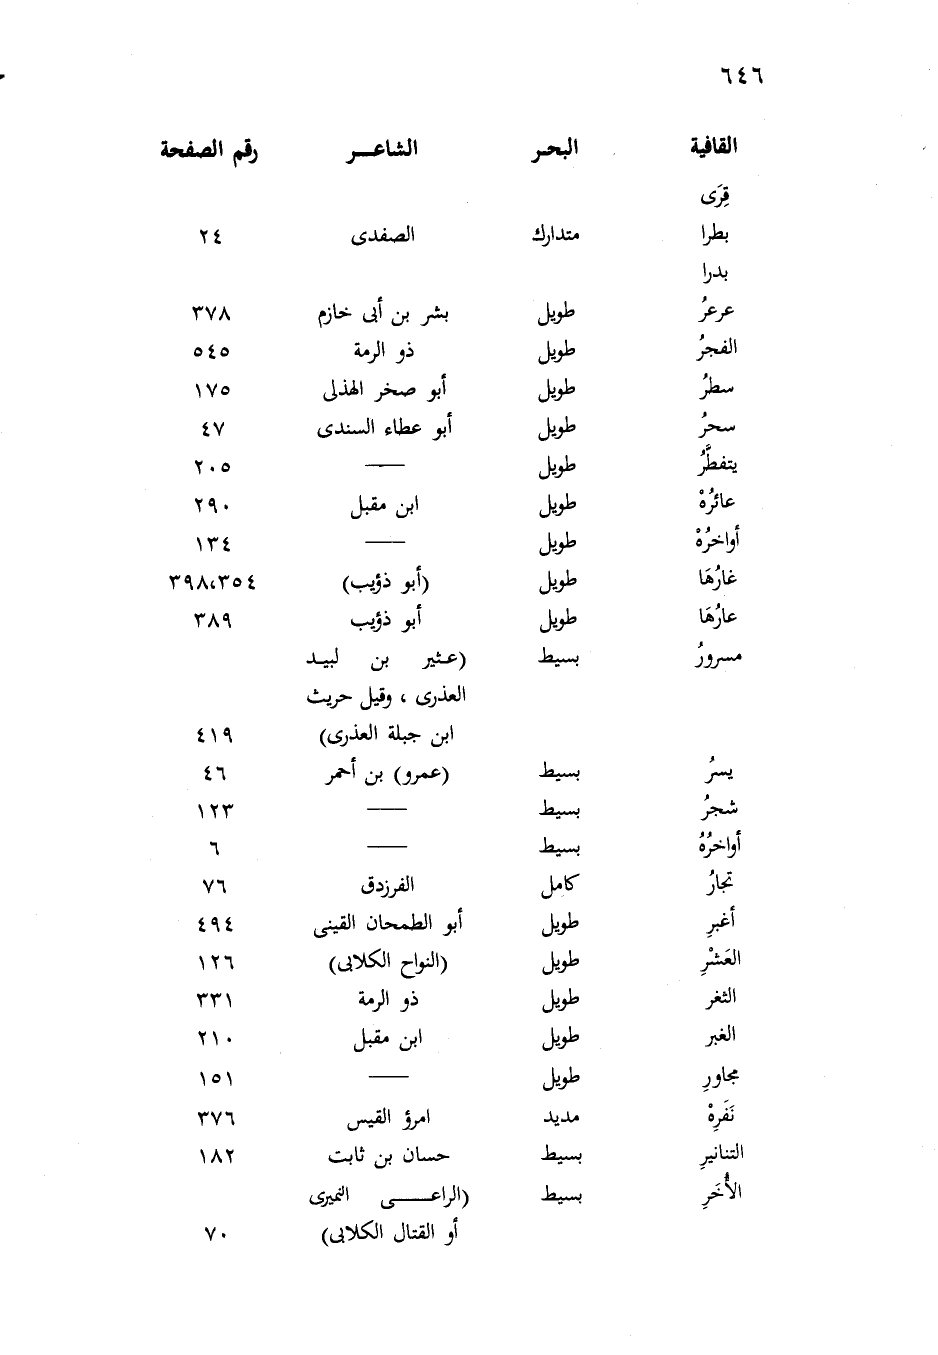 ٦٤٦
القافية البحـر الشاعـــر رقم الصفحة
قِرَى
بطرا متدارك الصفدى ٢٤
بدرا
عرعرُ طويل بشر بن أبى خازم ٣٧٨
الفجرُ طويل ذو الرمة ٥٤٥
سطرُ طويل أبو صخر الهذلى ١٧٥
سحرُ طويل أبو عطاء السندى ٤٧
يتفطَّرُ طويل —— ٢٠٥
عائرُهْ طويل ابن مقبل ٢٩٠
أواخرُهْ طويل —— ١٣٤
غارُهَا طويل (أبو ذؤيب) ٣٩٨،٣٥٤
عارُهَا طويل أبو ذؤيب ٣٨٩
مسرورُ بسيط (عـثير بن لبيـد
العذرى ، وقيل حريث
ابن جبلة العذرى) ٤١٩
يسرُ بسيط (عمرو) بن أحمر ٤٦
شجرُ بسيط —— ١٢٣
أواخرُهُ بسيط —— ٦
تجارُ كامل الفرزدق ٧٦
أغبرِ طويل أبو الطمحان القينى ٤٩٤
العَشْرِ طويل (النواح الكلابى) ١٢٦
الثغر طويل ذو الرمة ٣٣١
الغبر طويل ابن مقبل ٢١٠
مجاورِ طويل —— ١٥١
نَفَرِهْ مديد امرؤ القيس ٣٧٦
التنانيرِ بسيط حسان بن ثابت ١٨٢
الأُخَرِ بسيط (الراعـــــى النميرى
أو القتال الكلابى) ٧٠